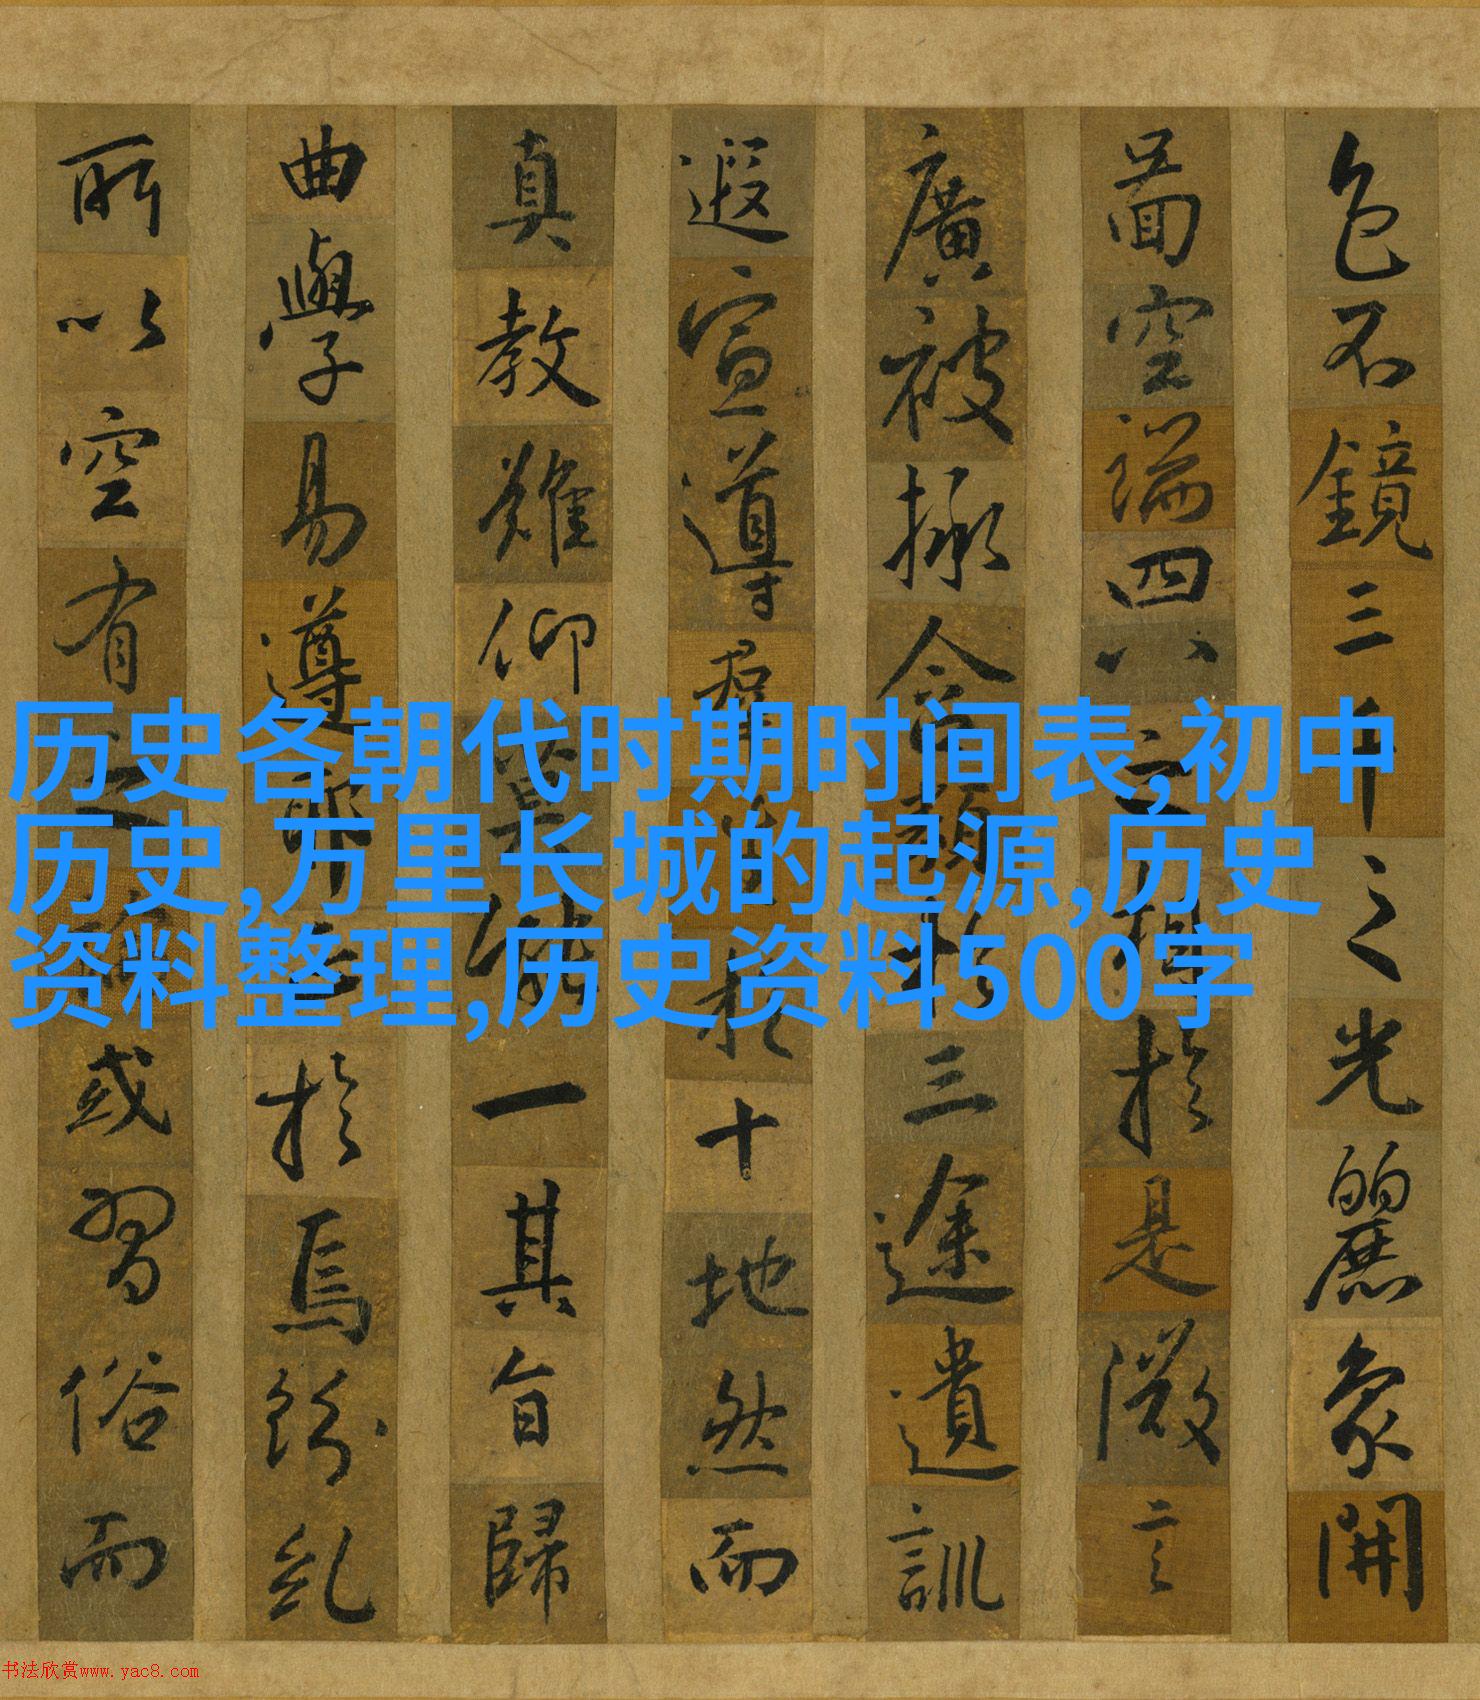 色不鏡三千之光麗象開
啚空端四八之相於是微言
廣被拯含類於三途遺訓
遐宣導群生於十地然而
真教難仰莫能一其旨歸
曲學易遵邪正於焉紛糺
所以空有之論或習俗而
历史各朝代时期时间表,初中
历史,万里长城的起源,历史
资料整理,历史资料500字
书法欣赏www.yac8.com